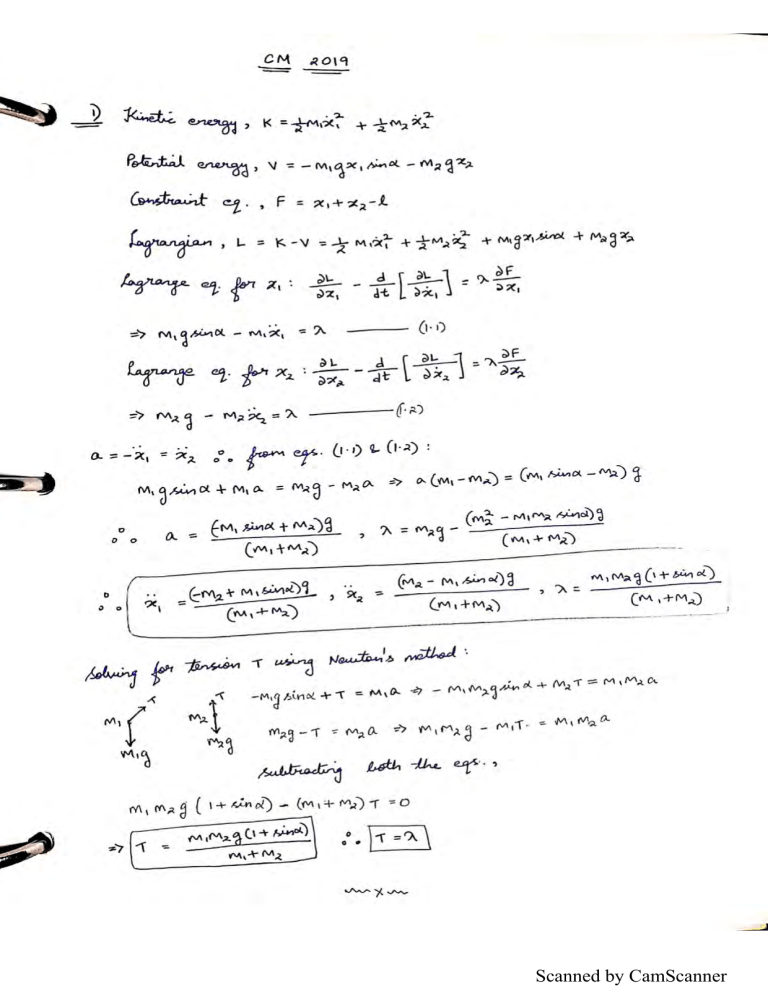 CM 2019
1) Kinetic energy, K = ½m₁ẋ₁² + ½m₂ẋ₂²
Potential energy, V = -m₁gx₁ sinα - m₂gx₂
Constraint eq., F = x₁+x₂-l
Lagrangian, L = K-V = ½ m₁ẋ₁² + ½m₂ẋ₂² + m₁gx₁sinα + m₂gx₂
Lagrange eq. for x₁: ∂L/∂x₁ - d/dt [∂L/∂ẋ₁] = λ ∂F/∂x₁
⇒ m₁g sinα - m₁ẍ₁ = λ —— (1.1)
Lagrange eq. for x₂: ∂L/∂x₂ - d/dt [∂L/∂ẋ₂] = λ ∂F/∂x₂
⇒ m₂g - m₂ẍ₂ = λ —— (1.2)
a = -ẍ₁ = ẍ₂ ∴ from eqs. (1.1) & (1.2):
m₁g sinα + m₁a = m₂g - m₂a ⇒ a(m₁-m₂) = (m₁ sinα - m₂) g
∴ a = (-m₁ sinα + m₂)g/(m₁+m₂) , λ = m₂g - (m₂² - m₁m₂ sinα)g/(m₁+m₂)
∴ ẍ₁ = (-m₂ + m₁ sinα)g/(m₁+m₂) , ẍ₂ = (m₂ - m₁ sinα)g/(m₁+m₂) , λ = m₁m₂g(1+sinα)/(m₁+m₂)
Solving for tension T using Newton's method:
m₁ T m₁g m₂ T m₂g
-m₁g sinα + T = m₁a ⇒ -m₁m₂g sinα + m₂T = m₁m₂a
m₂g - T = m₂a ⇒ m₁m₂g - m₁T. = m₁m₂a
subtracting both the eqs.,
m₁m₂g (1+ sinα) - (m₁+m₂) T = 0
⇒ T = m₁m₂g(1+sinα)/m₁+m₂ ∴ T = λ
x
Scanned by CamScanner